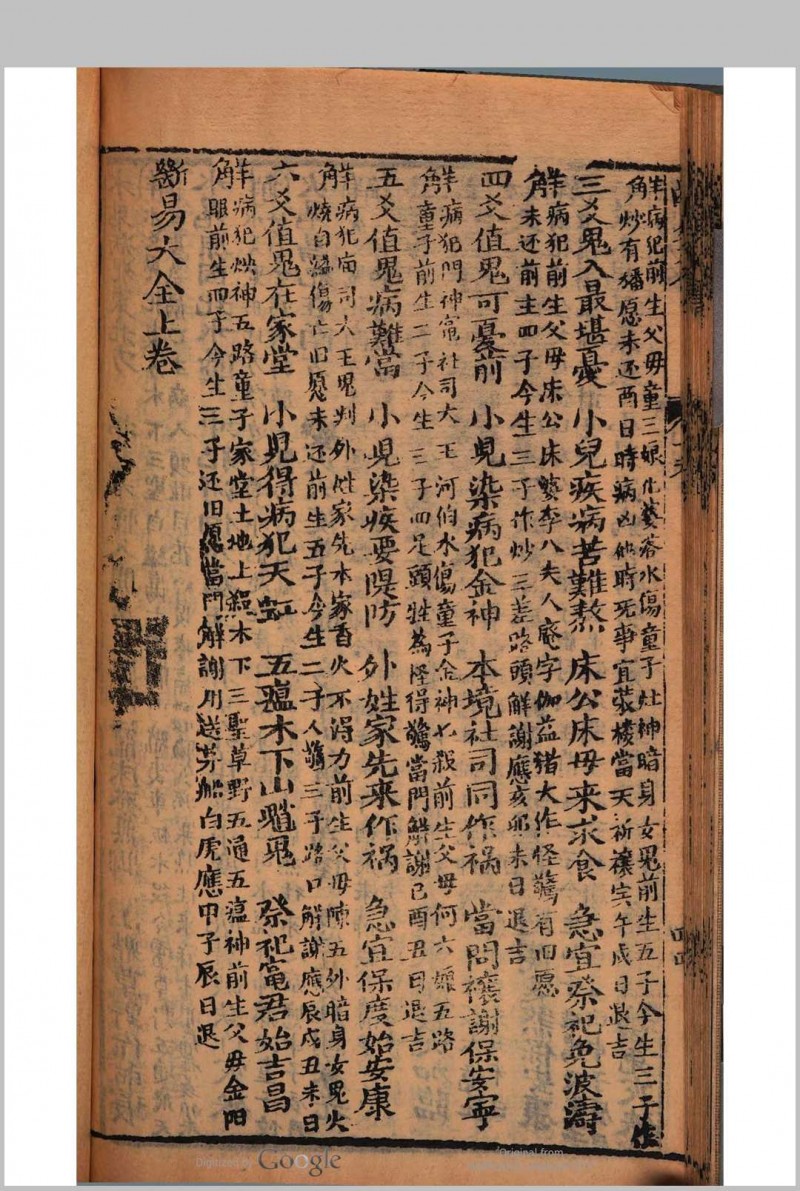 解病犯前生父母童三娘化婆落水傷童子灶神暗身女鬼前生五子今生三子作
角炒有猪愿未还酉日時病凶他時死事宜裝樓當天祈禳寅午戌日退吉
三爻鬼入最堪憂 小兒疾病苦難熬 床公床母来求食 急宜祭祀免波濤
解病犯前生父母床公床婆李八夫人庵字伽藍猪犬作怪驚有旧愿
未还前主四子今生三子作炒三差路頭解謝應亥卯未日退吉
四爻值鬼可憂前 小児染病犯金神 本境社司同作禍 當問禳謝保安寧
解病犯門神竃社司大王河伯水傷童子金神七殺前生父母何六娘五路
童子前生二子今生三子四足頭牲為怪得驚當門解謝巳酉丑日退吉
五爻值鬼病難當 小児染疾要隄防 外姓家先来作禍 急宜保度始安康
解病犯庙司大王鬼判外姓家先本家香火不淂力前生父母陳五外暗身女鬼火
燒自縊傷亡旧愿未还前生五子今生二子人驚三子路口解謝應辰戌丑未日
六爻值鬼在家堂 小児得病犯天缸 五瘟木下山魈鬼 祭祀竃君始吉昌
解病犯神五路童子家堂土地上殺木下三聖草野五通五瘟神前生父母金阳
眼前生四子今生三子还旧愿當門解謝用送芳船白虎應申子辰日退
斷易大全上卷
Digitized by Google
Original from